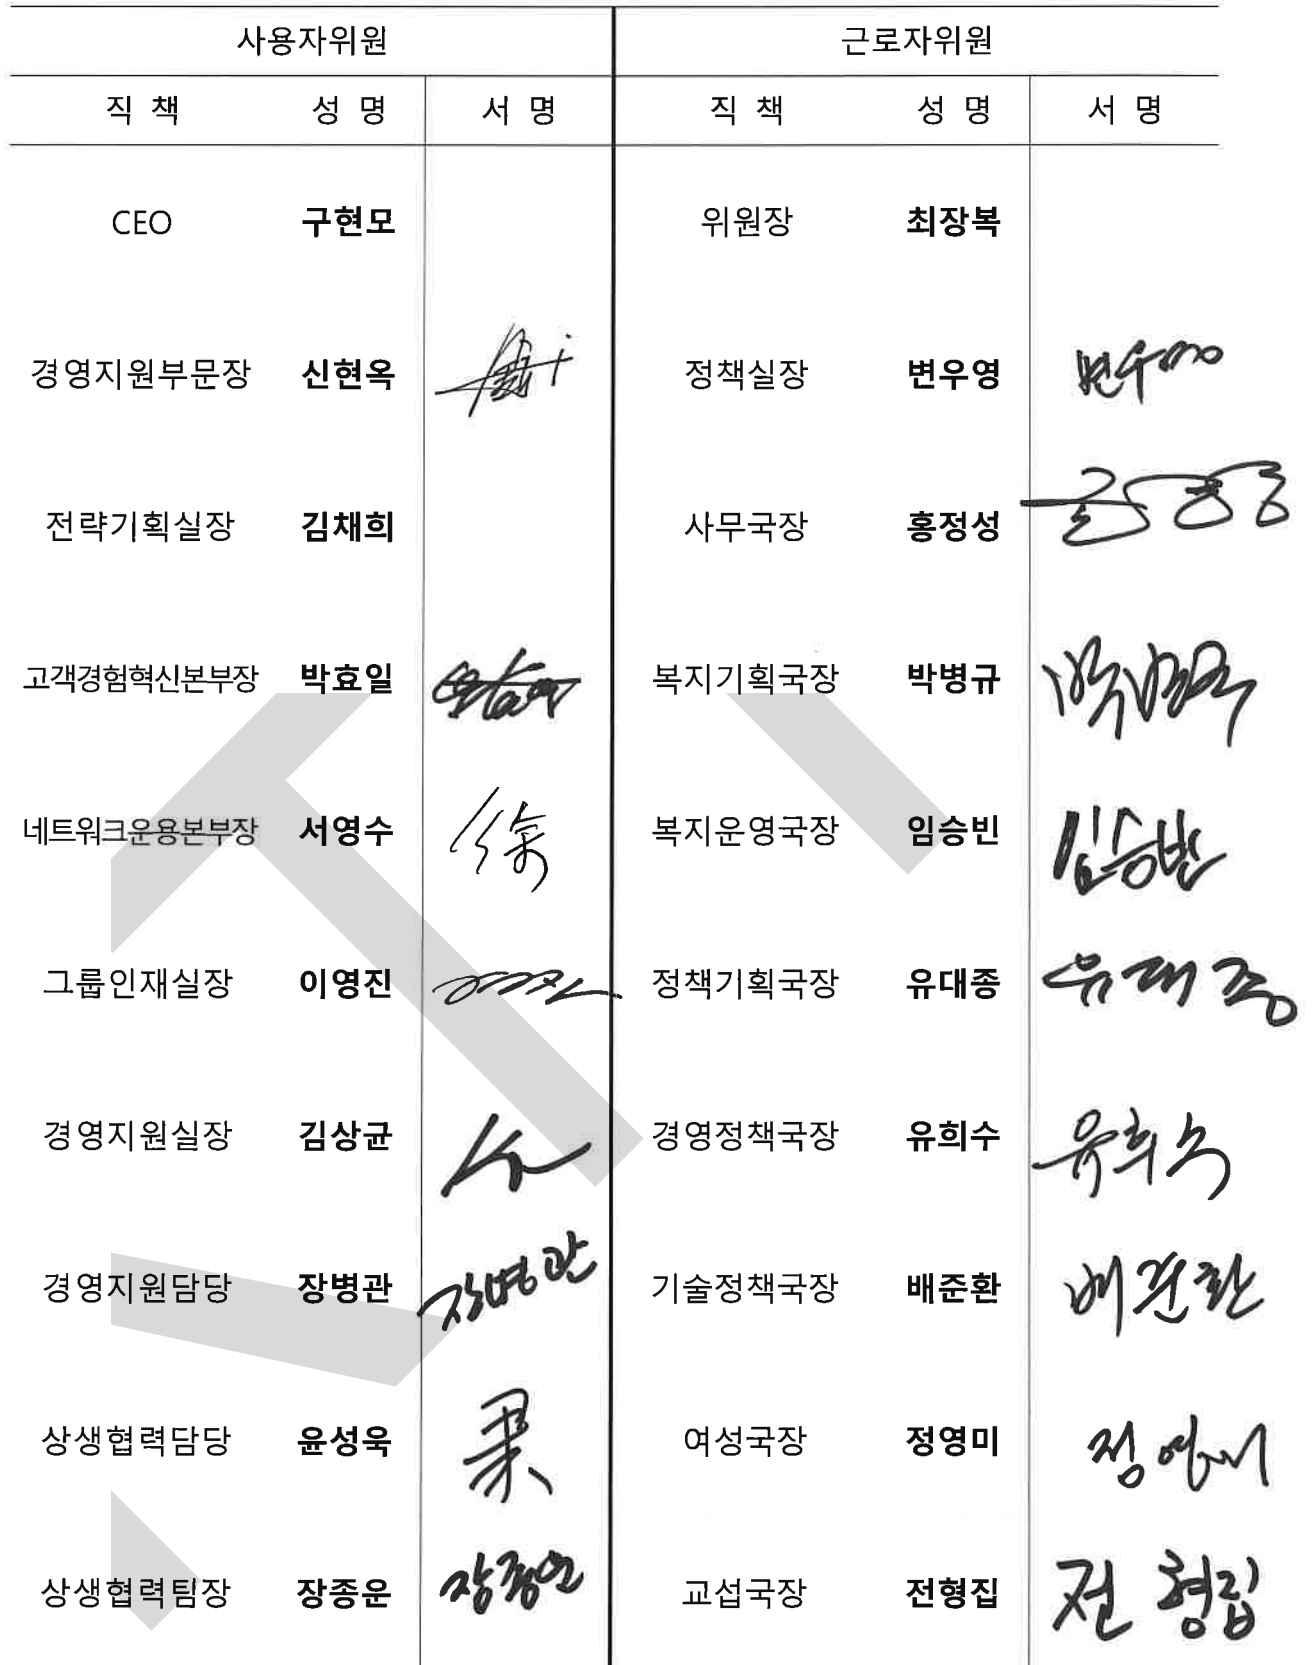 사용자위원 근로자위원
직 책 성 명 서 명 직 책 성 명 서 명
CEO 구현모 위원장 최장복
경영지원부문장 신현옥 정책실장 변우영 변우영
전략기획실장 김채희 사무국장 홍정성
고객경험혁신본부장 박효일 복지기획국장 박병규 박병규
네트워크운용본부장 서영수 徐 복지운영국장 임승빈 임승빈
그룹인재실장 이영진 정책기획국장 유대종 유대종
경영지원실장 김상균 경영정책국장 유희수 유희수
경영지원담당 장병관 장병관 기술정책국장 배준환 배준환
상생협력담당 윤성욱 여성국장 정영미 정영미
상생협력팀장 장종운 장종운 교섭국장 전형집 전형집